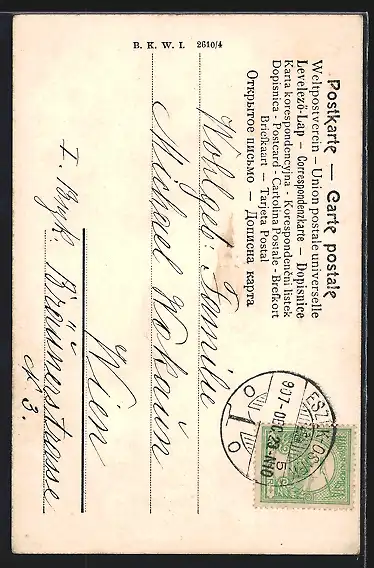 B. K. W. I. 2610/4
Postkarte — Carte postale
Weltpostverein — Union postale universelle
Levelező-Lap — Correspondenzkarte — Dopisnice
Karta korespondencyjna - Korespondenční listek
Dopisnica - Postcard - Cartolina Postale - Brefkort
Briefkaart — Tarjeta Postal
Открытое письмо — Дописна карта
907 DEC 23
5
Wohlgeb. Familie
Michael Wokaun
Wien
I. Bzk. Bräunerstrasse
№ 3.